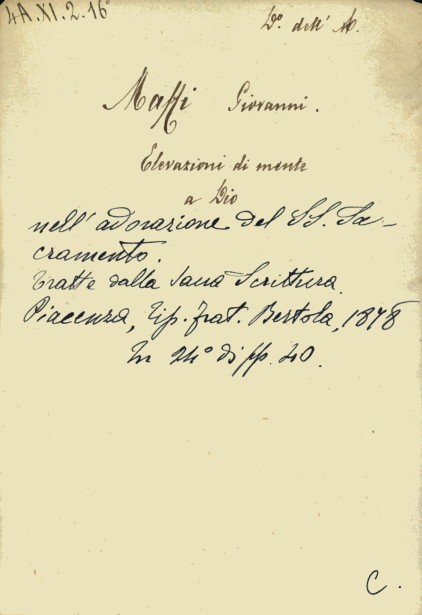 4A.XI.2.16°
D°. dell' A.
Maffi Giovanni.
Elevazioni di mente
a Dio
nell'adorazione del SS. Sa-
cramento.
tratte dalla Sacra Scrittura.
Piacenza, Tip. frat. Bertola, 1878
In 24° di pp. 40.
C.